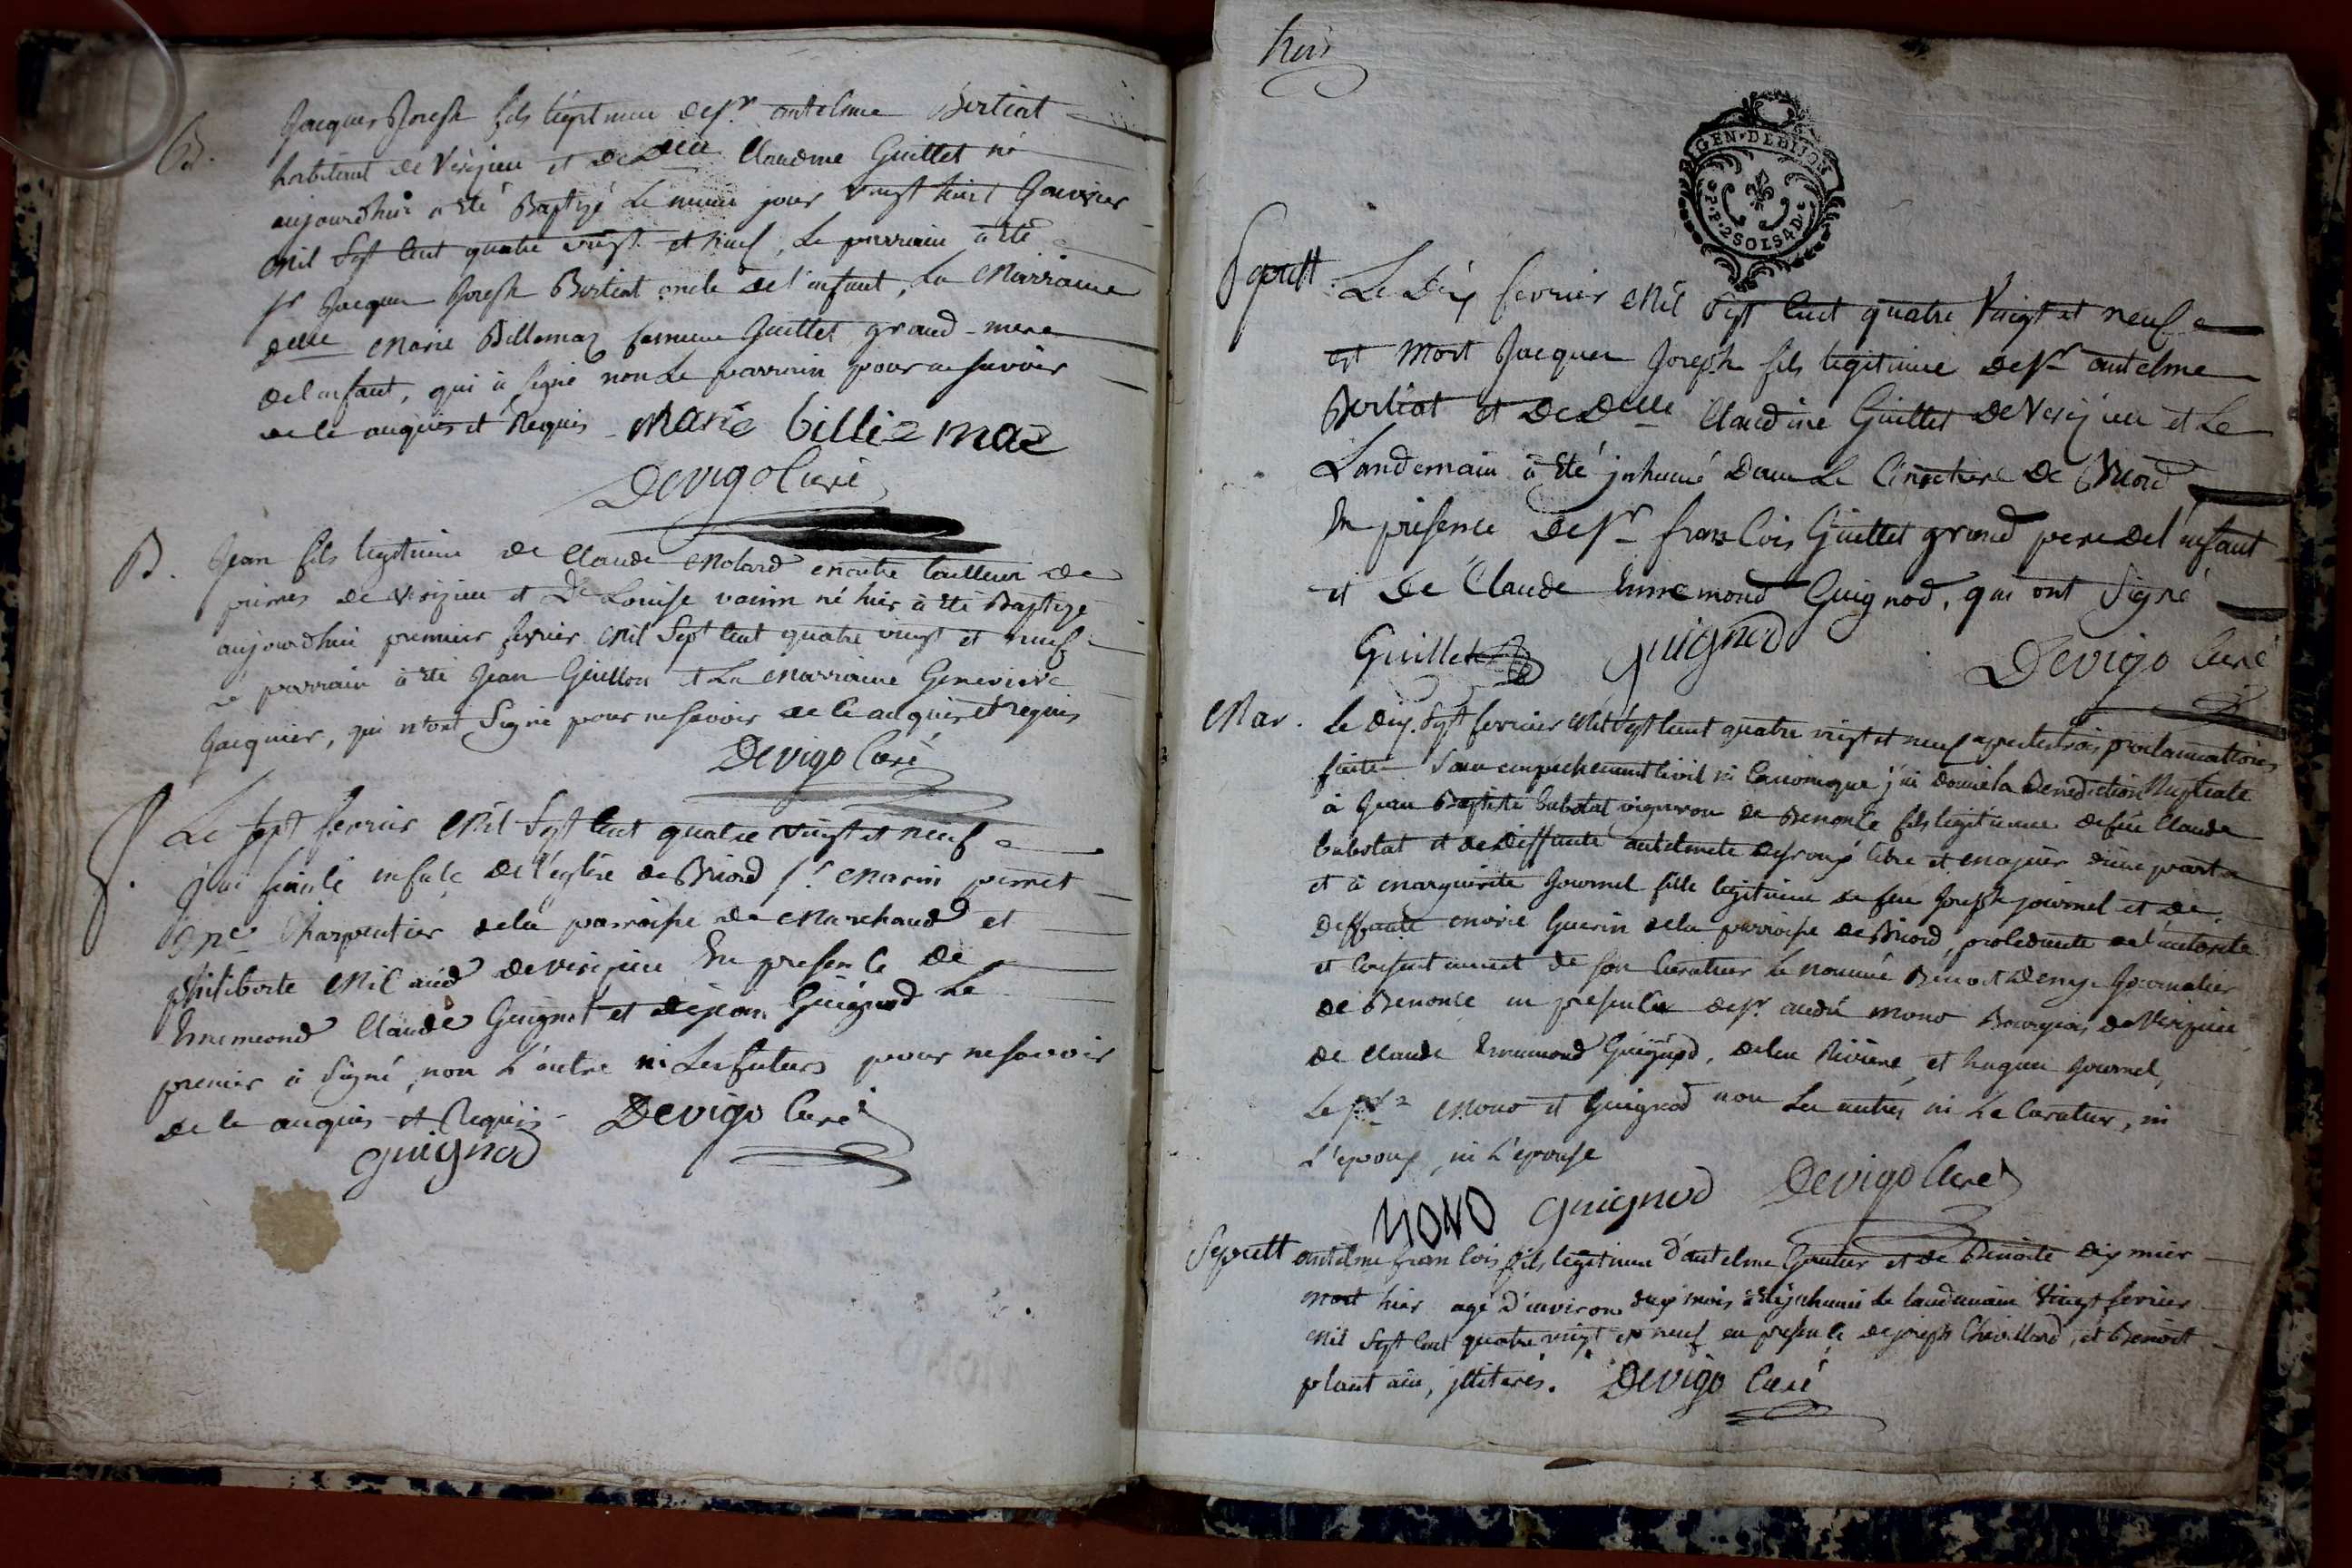 B.
Jacques Joseph fils légitime de sr. antelme Bertiat
habitant de Verizieu et de delle Claudine Guillet né
aujourdhui a été Baptizé le meme jour vingt huit Janvier
Mil Sept Cent quatre vingt et neuf, Le parrain à été
sr Jacques Joseph Bertiat oncle de l'enfant, La Marraine
delle Marie Billemaz femme Guillet grand-mere
de l'enfant, qui à signé non Le parrain pour ne savoir
de ce enquis et Requis Marie billiemaz
Devigo Curé
B. Jean fils legitime de Claude Molard tailleur de
pierres de Verizieu et De Louise né hier à été Baptizé
aujourdhui premier fevrier Mil Sept Cent quatre vingt et neuf
Le parrain à été Jean Guillon et La Marraine Genevieve
Jacquier, qui n'ont Signé pour ne savoir de ce enquis et requis
Devigo Curé
f. Le sept fevrier Mil Sept Cent quatre vingt et neuf
j'ai fiancé en face de l'église de Briord sr. Marin perret
Charpentier de la parroisse de Marchand et
philiberte de Verizieu En presence de
Ennemond Claude Guignod et de jean Guignod Le
premier à Signé, non L'autre ni Les futurs pour ne savoir
de ce enquis et Requis Devigo Curé
Guignod
trois
GEN. DE DIJON
P.P. 2 SOLS 4 D.
Sepult. Le Dix fevrier Mil Sept Cent quatre Vingt et neuf
est Mort Jacques Joseph fils legitime de sr antelme
Bertiat et De Delle Claudine Guillet De Verizieu et Le
Landemain à Eté jnhumé Dans Le Cimetiere De Briord
En présence De sr francois Guillet grand pere de l'enfant
et De Claude Ennemond Guignod, qui ont Signé
Guillet Guignod Devigo Curé
Mar. Le dix Sept fevrier Mil Sept Cent quatre vingt et neuf après les trois proclamations
faites Sans empechement Civil ni Canonique j'ai donné la Benediction Nuptiale
à Jean Baptiste Cubotat vigneron de Benonce fils légitime de feu Claude
Cubotat et de deffunte antelmete libre et majeur d'une part
et à Marguerite Journel fille legitime de feu Joseph journel et de
deffunte Marie Guerin de la parroisse de Briord, procedante de l'autorité
et Consentement de son Curateur Le nommé Benoit Journalier
de Benonce en presence de sr. andré Mono Bourgeois de Verizieu
de Claude Ennemond Guignod, de la Riviere, et hugues Journel,
Le sr Mono et Guignod non Les autres ni Le Curateur, ni
L'epoux, ni L'epouse
MONO Guignod Devigo Curé
Sepult antelme francois fils legitime d'antelme Gautier et de Benoite
mort hier agé d'environ dix mois à été jnhumé le landemain Vingt fevrier
Mil Sept Cent quatre vingt et neuf en presence de joseph Chevillard, et Benoit
plantain, jlliterés. Devigo Curé